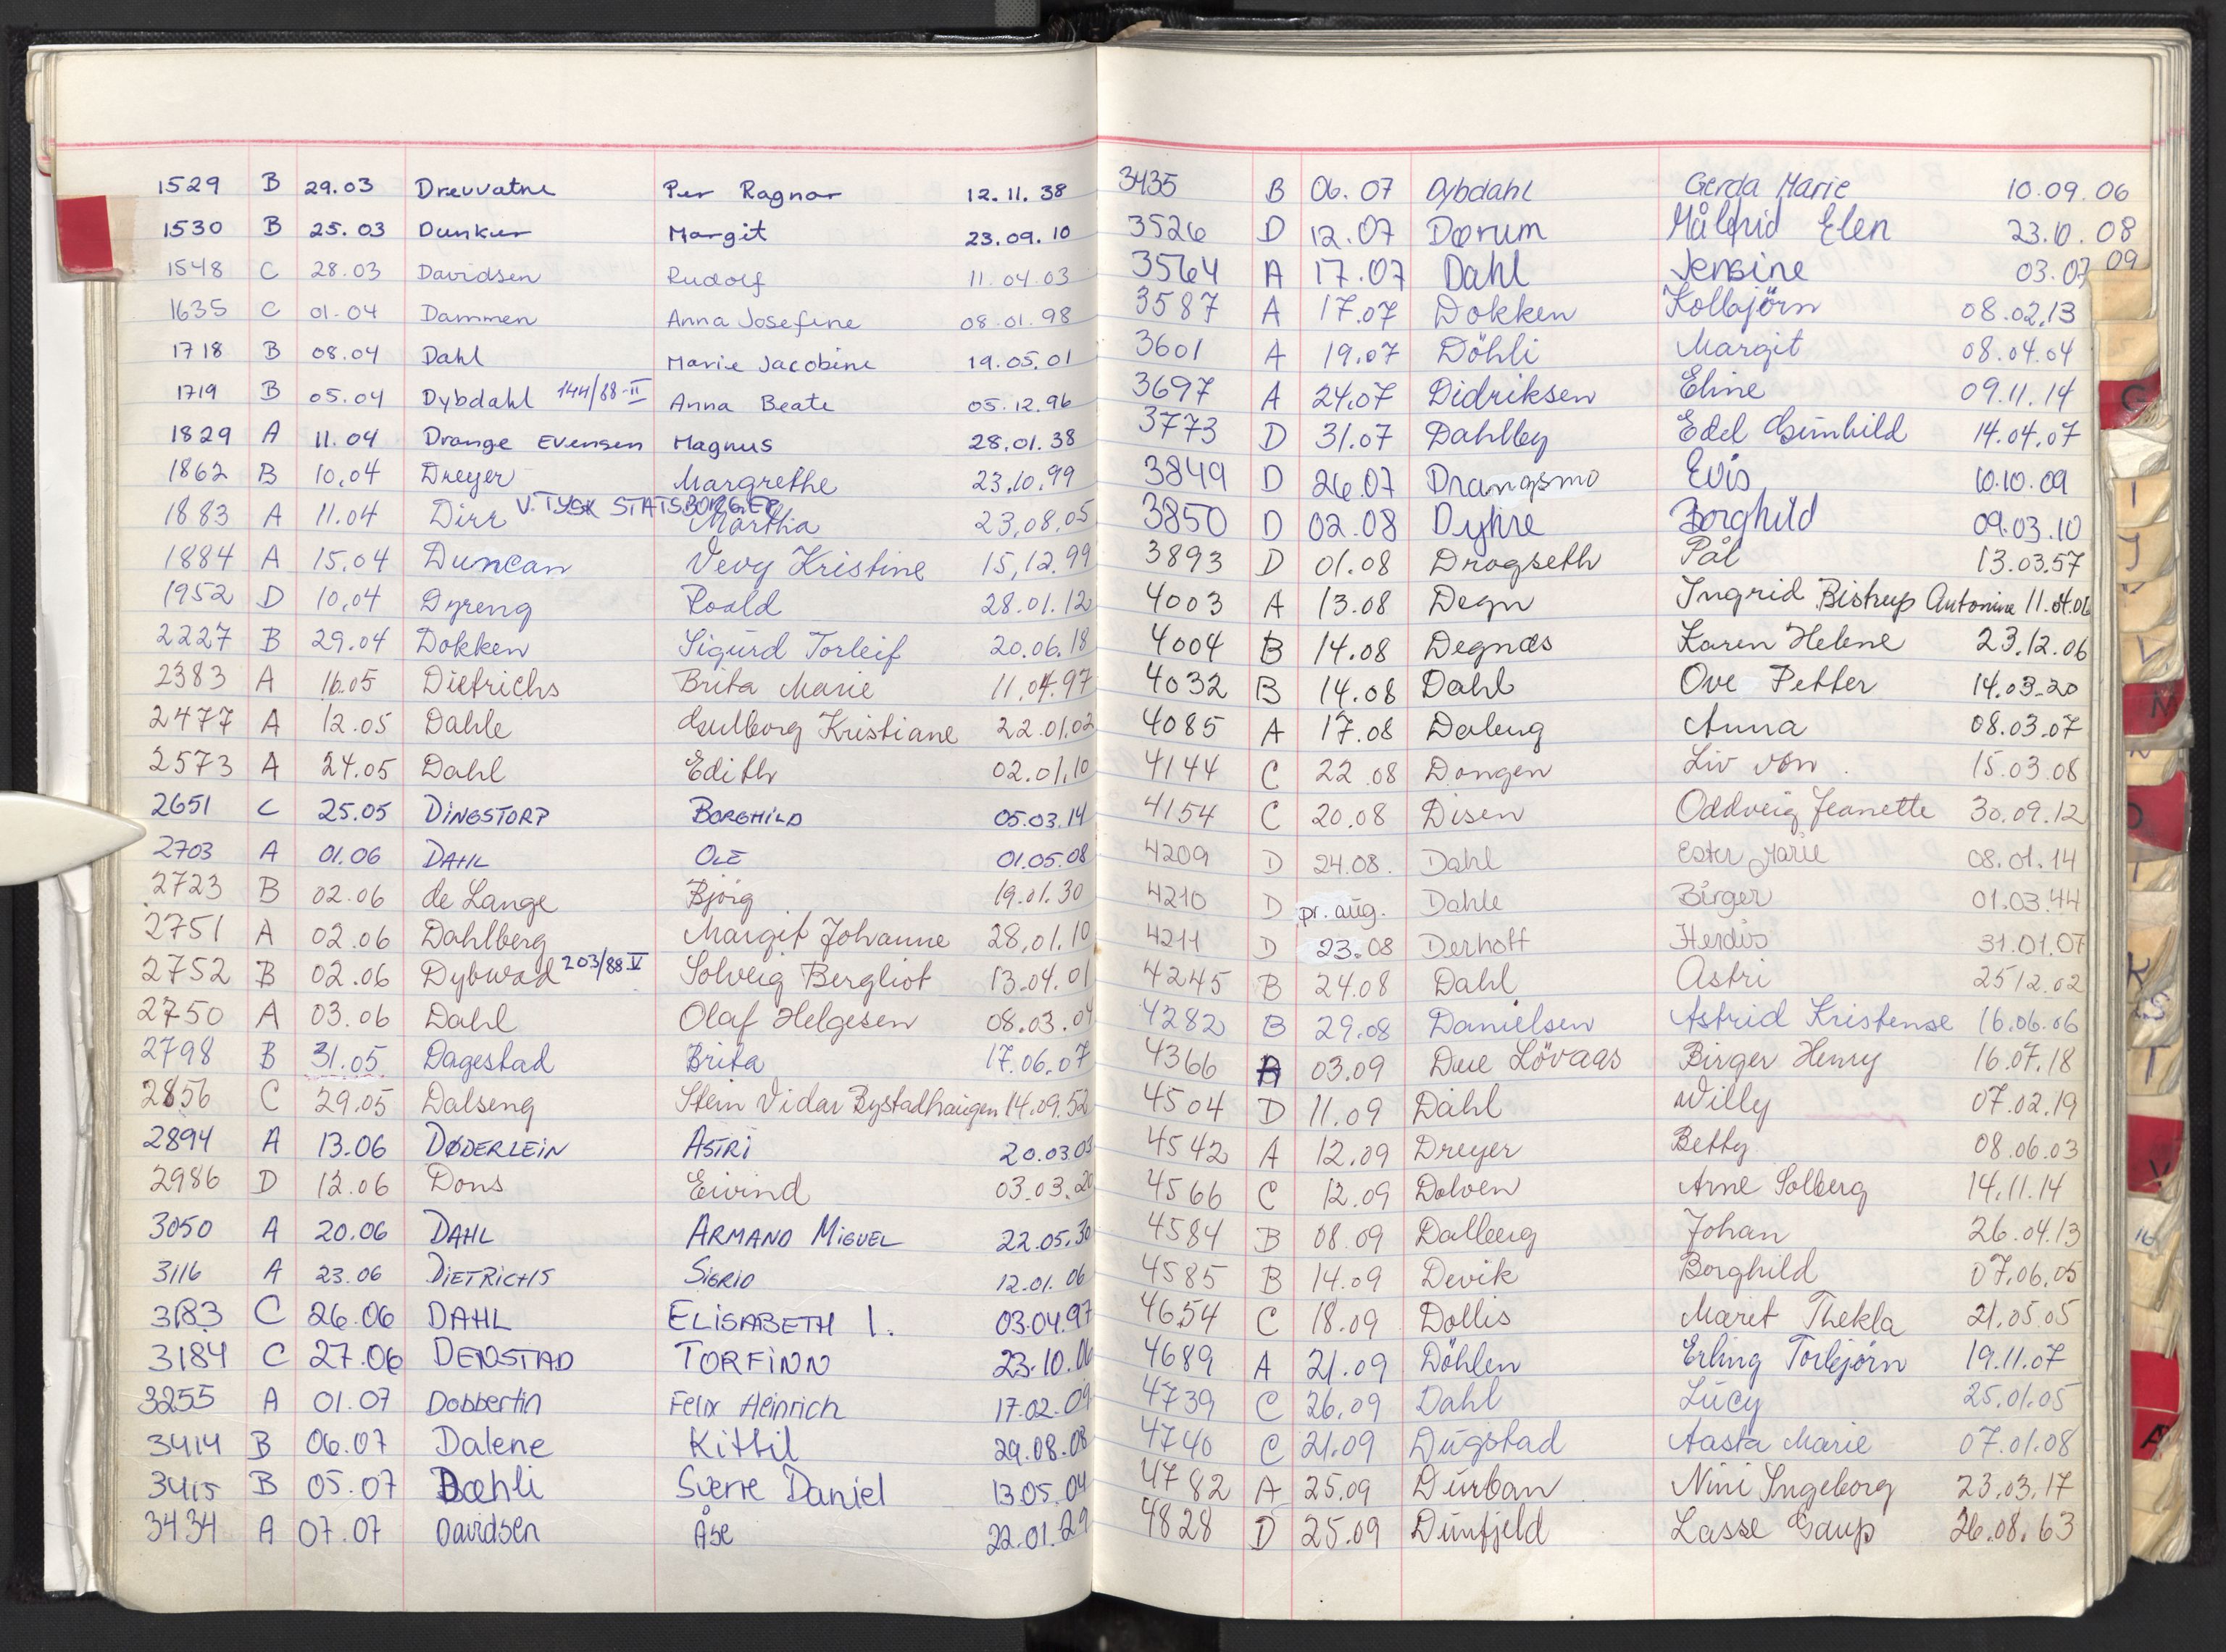 1529 B 29.03 Drevvatne Per Ragnar 12.11.38
1530 B 25.03 Dunker Margit 23.09.10
1548 C 28.03 Davidsen Rudolf 11.04.03
1635 C 01.04 Dammen Anna Josefine 08.01.98
1718 B 08.04 Dahl Marie Jacobine 19.05.01
1719 B 05.04 Dybdahl 144/88-II Anna Beate 05.12.96
1829 A 11.04 Drange Evensen Magnus 28.01.38
1862 B 10.04 Dreyer Margrethe 23.10.99
V. TYSK STATSBORGER
1883 A 11.04 Dirr Martha 23.08.05
1884 A 15.04 Duncan Vevy Kristine 15.12.99
1952 D 10.04 Dyreng Roald 28.01.12
2227 B 29.04 Dokken Sigurd Torleif 20.06.18
2383 A 16.05 Dietrichs Brita Marie 11.04.97
2477 A 12.05 Dahle Gulborg Kristiane 22.01.02
2573 A 24.05 Dahl Edith 02.01.10
2651 C 25.05 DINGSTORP BORGHILD 05.03.14
2703 A 01.06 DAHL OLE 01.05.08
2723 B 02.06 de Lange Bjørg 19.01.30
2751 A 02.06 Dahlberg Margit Johanne 28.01.10
2752 B 02.06 Dybwad 203/88 V Solveig Bergliot 13.04.01
2750 A 03.06 Dahl Olaf Helgesen 08.03.04
2798 B 31.05 Dagestad Brita 17.06.07
2856 C 29.05 Dalseng Stein Vidar Bystadhaugen 14.09.52
2894 A 13.06 DØDERLEIN ASTRI 20.03.03
2986 D 12.06 Dons Eivind 03.03.20
3050 A 20.06 DAHL ARMAND MIGUEL 22.05.30
3116 A 23.06 DIETRICHS SIGRID 12.01.06
3183 C 26.06 DAHL ELISABETH I. 03.04.97
3184 C 27.06 DENSTAD TORFINN 23.10.06
3255 A 01.07 Dobbertin Felix Heinrich 17.02.09
3414 B 06.07 Dalene Kittil 29.08.08
3415 B 05.07 Dæhli Sverre Daniel 13.05.04
3434 A 07.07 Davidsen Åse 22.01.29
3435 B 06.07 Dybdahl Gerda Marie 10.09.06
3526 D 12.07 Dørum Målfrid Elen 23.10.08
3564 A 17.07 Dahl Jensine 03.07 09
3587 A 17.07 Dokken Kolbjörn 08.02.13
3601 A 19.07 Döhli Margit 08.04.04
3697 A 24.07 Didriksen Eline 09.11.14
3773 D 31.07 Dahlby Edel Gunhild 14.04.07
3849 D 26.07 Drangsmo Evis 10.10.09
3850 D 02.08 Dyhre Borghild 09.03.10
3893 D 01.08 Drogseth Pål 13.03.57
4003 A 13.08 Degn Ingrid Bistrup Antonine 11.04.06
4004 B 14.08 Degnæs Karen Helene 23.12.06
4032 B 14.08 Dahl Ove Petter 14.03.20
4085 A 17.08 Daleng Anna 08.03.07
4144 C 22.08 Dongen Liv von 15.03.08
4154 C 20.08 Disen Oddveig Jeanette 30.09.12
4209 D 24.08. Dahl Ester Marie 08.01.14
4210 D pr. aug. Dahle Birger 01.03.44
4211 D 23.08 Derhoff Herdis 31.01.07
4245 B 24.08 Dahl Astri 25 12.02
4282 B 29.08 Danielsen Astrid Kristense 16.06.06
4366 A 03.09 Due Lövaas Birger Henry 16.07.18
4504 D 11.09 Dahl Willy 07.02.19
4542 A 12.09 Dreyer Betty 08.06.03
4566 C 12.09 Dolven Arne Solberg 14.11.14
4584 B 08.09 Dalberg Johan 26.04.13
4585 B 14.09 Devik Borghild 07.06.05
4654 C 18.09 Dollis Marit Thekla 21.05.05
4689 A 21.09 Döhlen Erling Torbjörn 19.11.07
4739 C 26.09 Dahl Lucy 25.01.05
4740 C 21.09 Dugstad Aasta Marie 07.01.08
4782 A 25.09 Durban Nini Ingeborg 23.03.17
4828 D 25.09 Dunfjeld Lasse Gaup 26.08.63
G
I
J
L
M
N
O
K
S
T
V